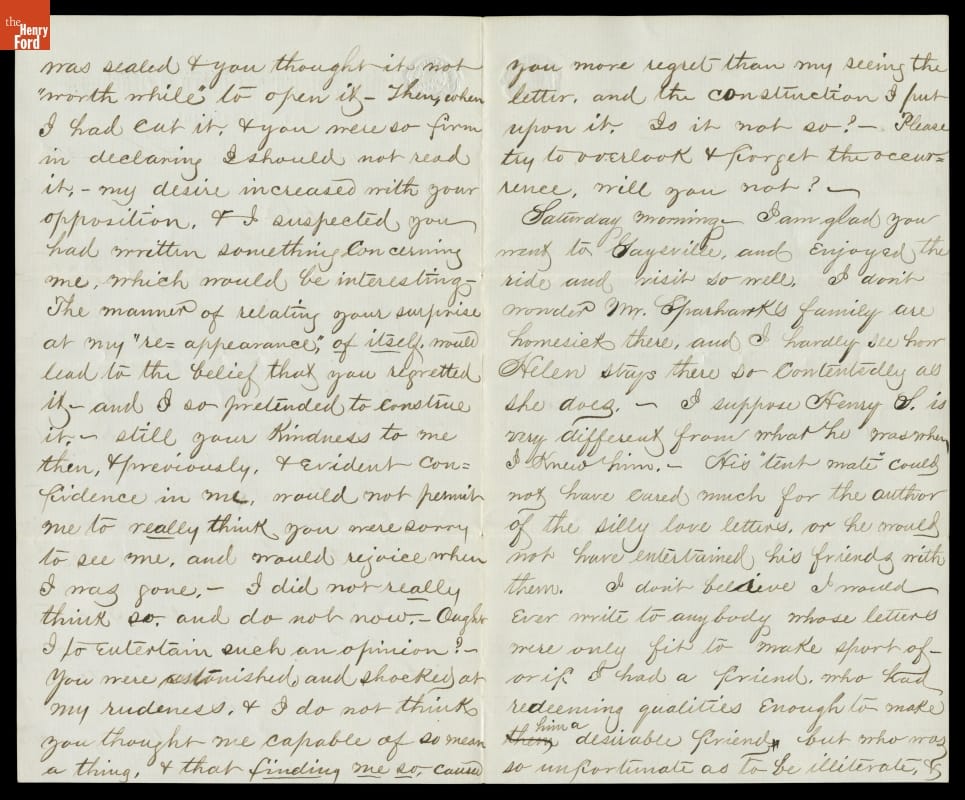 the
Henry
Ford
was sealed & you thought it not
"worth while" to open it – Then, when
I had cut it, & you were so firm
in declaring I should not read
it, – my desire increased with your
opposition, & I suspected you
had written something concerning
me, which would be interesting –
The manner of relating your surprise
at my "re=appearance," of itself, would
lead to the belief that you regretted
it – and I so pretended to construe
it. – still your kindness to me
then, & previously, & evident con=
fidence in me, would not permit
me to really think you were sorry
to see me, and would rejoice when
I was gone. – I did not really
think so, and do not now. – Ought
I to entertain such an opinion? –
You were astonished, and shocked at
my rudeness, & I do not think
you thought me capable of so mean
a thing, & that finding me so, caused
you more regret than my seeing the
letter, and the construction I put
upon it. Is it not so? – Please
try to overlook & forget the occur=
rence, will you not? –
Saturday morning – I am glad you
went to Gaysville, and enjoyed the
ride and visit so well. I don't
wonder Mr. Sparhawk's family are
homesick there, and I hardly see how
Helen stays there so contentedly as
she does. – I suppose Henry S. is
very different from what he was when
I knew him. – His "tent mate" could
not have cared much for the author
of the silly love letters, or he would
not have entertained his friends with
them. I don't believe I would
ever write to anybody whose letters
were only fit to make sport of –
or if I had a friend, who had
redeeming qualities enough to make
them him a desirable friend, but who was
so unfortunate as to be illiterate, &